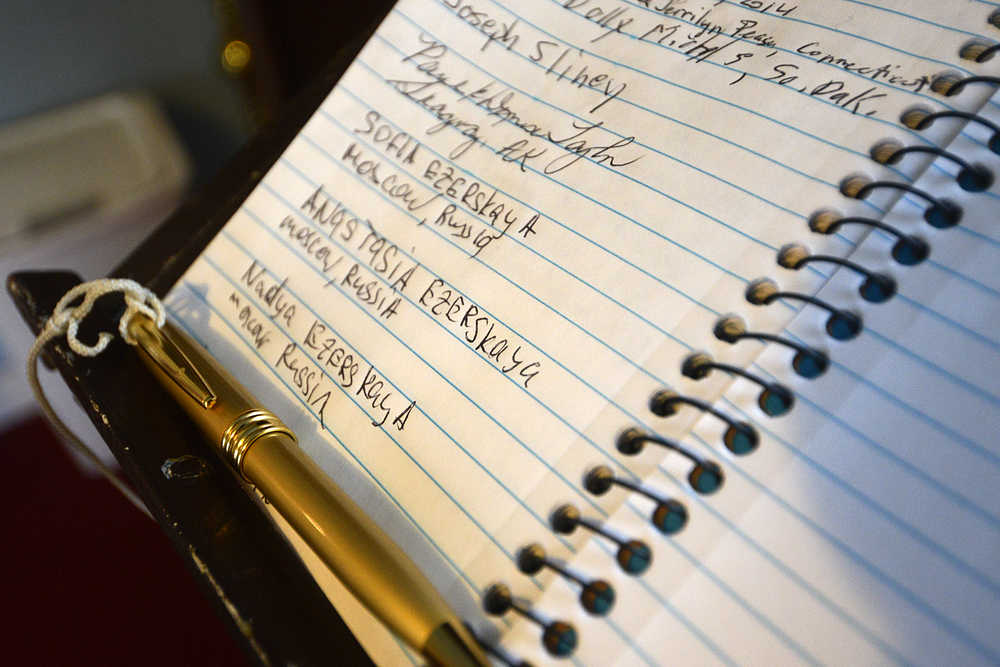 2014
Jerrilyn Peace, Connecticut
Dolly M, So. Dak.
Joseph Sliney
Taylor
AK
SOFIA EZERSKAYA
Moscow, Russia
ANASTASIA EZERSKAYA
moscow, RUSSIA
Nadya EZERSKAYA
moscow RUSSIA